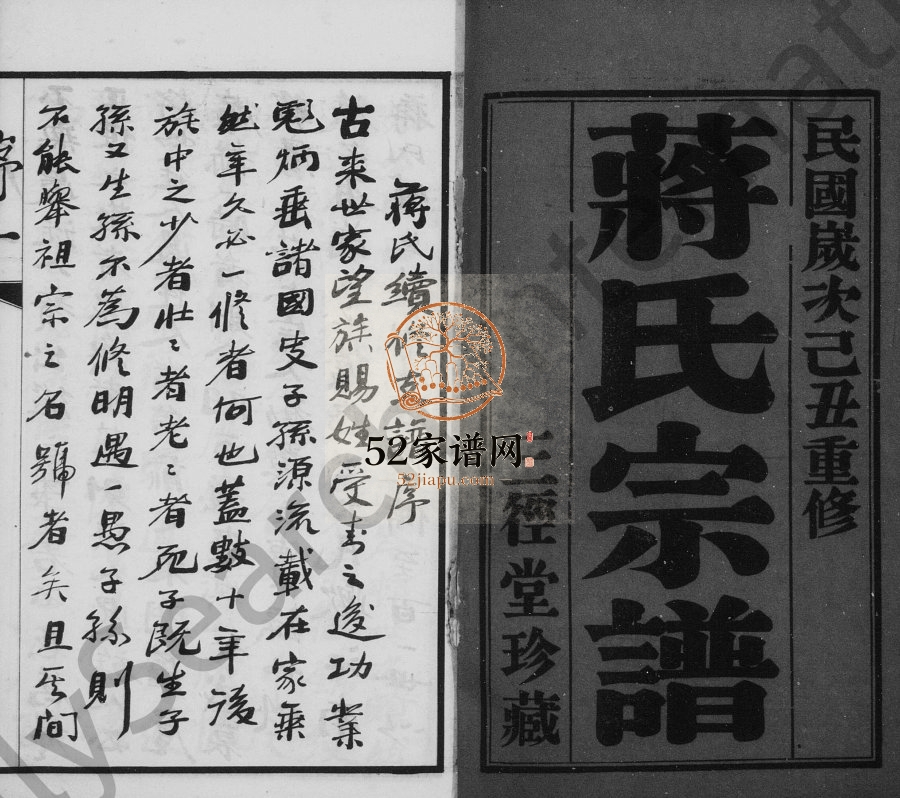 民國歲次己丑重修
蔣氏宗譜
三徑堂珍藏
蔣氏續修宗譜序
古来世家望族賜姓受封之後功業
彪炳垂諸國史子孫源流載在家乘
然年久必一修者何也蓋數十年後
族中之少者壯〻者老〻者死子既生子
孫又生孫不為修明遇一愚子孫則
不能舉祖宗之名號者矣且其間
序
一
52家谱网
52jiapu.com